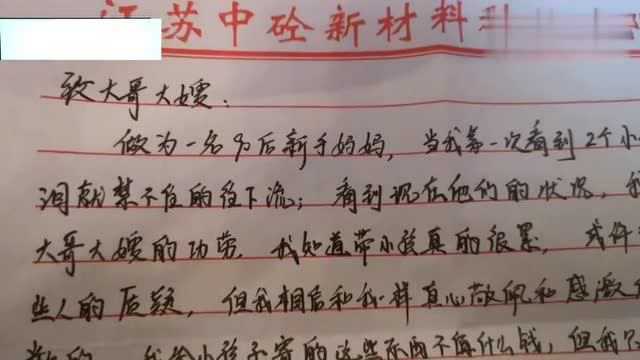 江苏中砼新材料科
致大哥大嫂：
做为一名90后新手妈妈，当我第一次看到2个小
泪就禁不住的往下流；看到现在他们的状况，我
大哥大嫂的功劳，我知道带小孩真的很累，或许
些人的质疑，但我相信和我一样真心敬佩和感激
我给小孩子寄的这些东西不值什么钱，但我